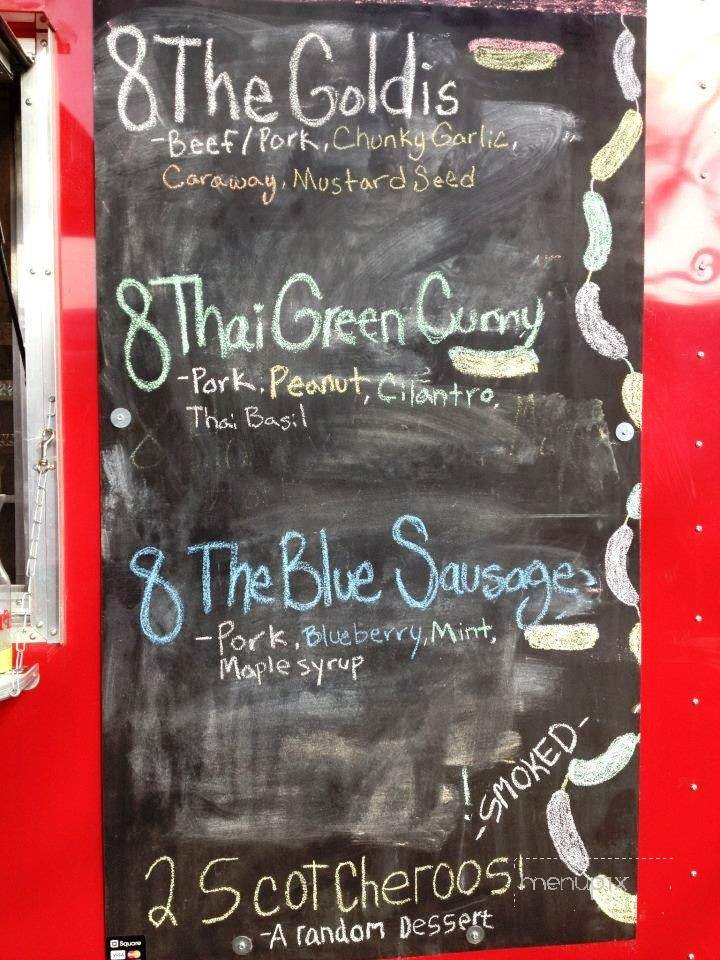 8 The Goldis
-Beef/Pork, Chunky Garlic,
Caraway, Mustard Seed
8 Thai Green Curry
-Pork, Peanut, Cilantro,
Thai Basil
8 The Blue Sausage
-Pork, Blueberry, Mint,
Maple syrup
-SMOKED-
!
2 Scotcheroos!
-A random Dessert
menupix
Square
VISA